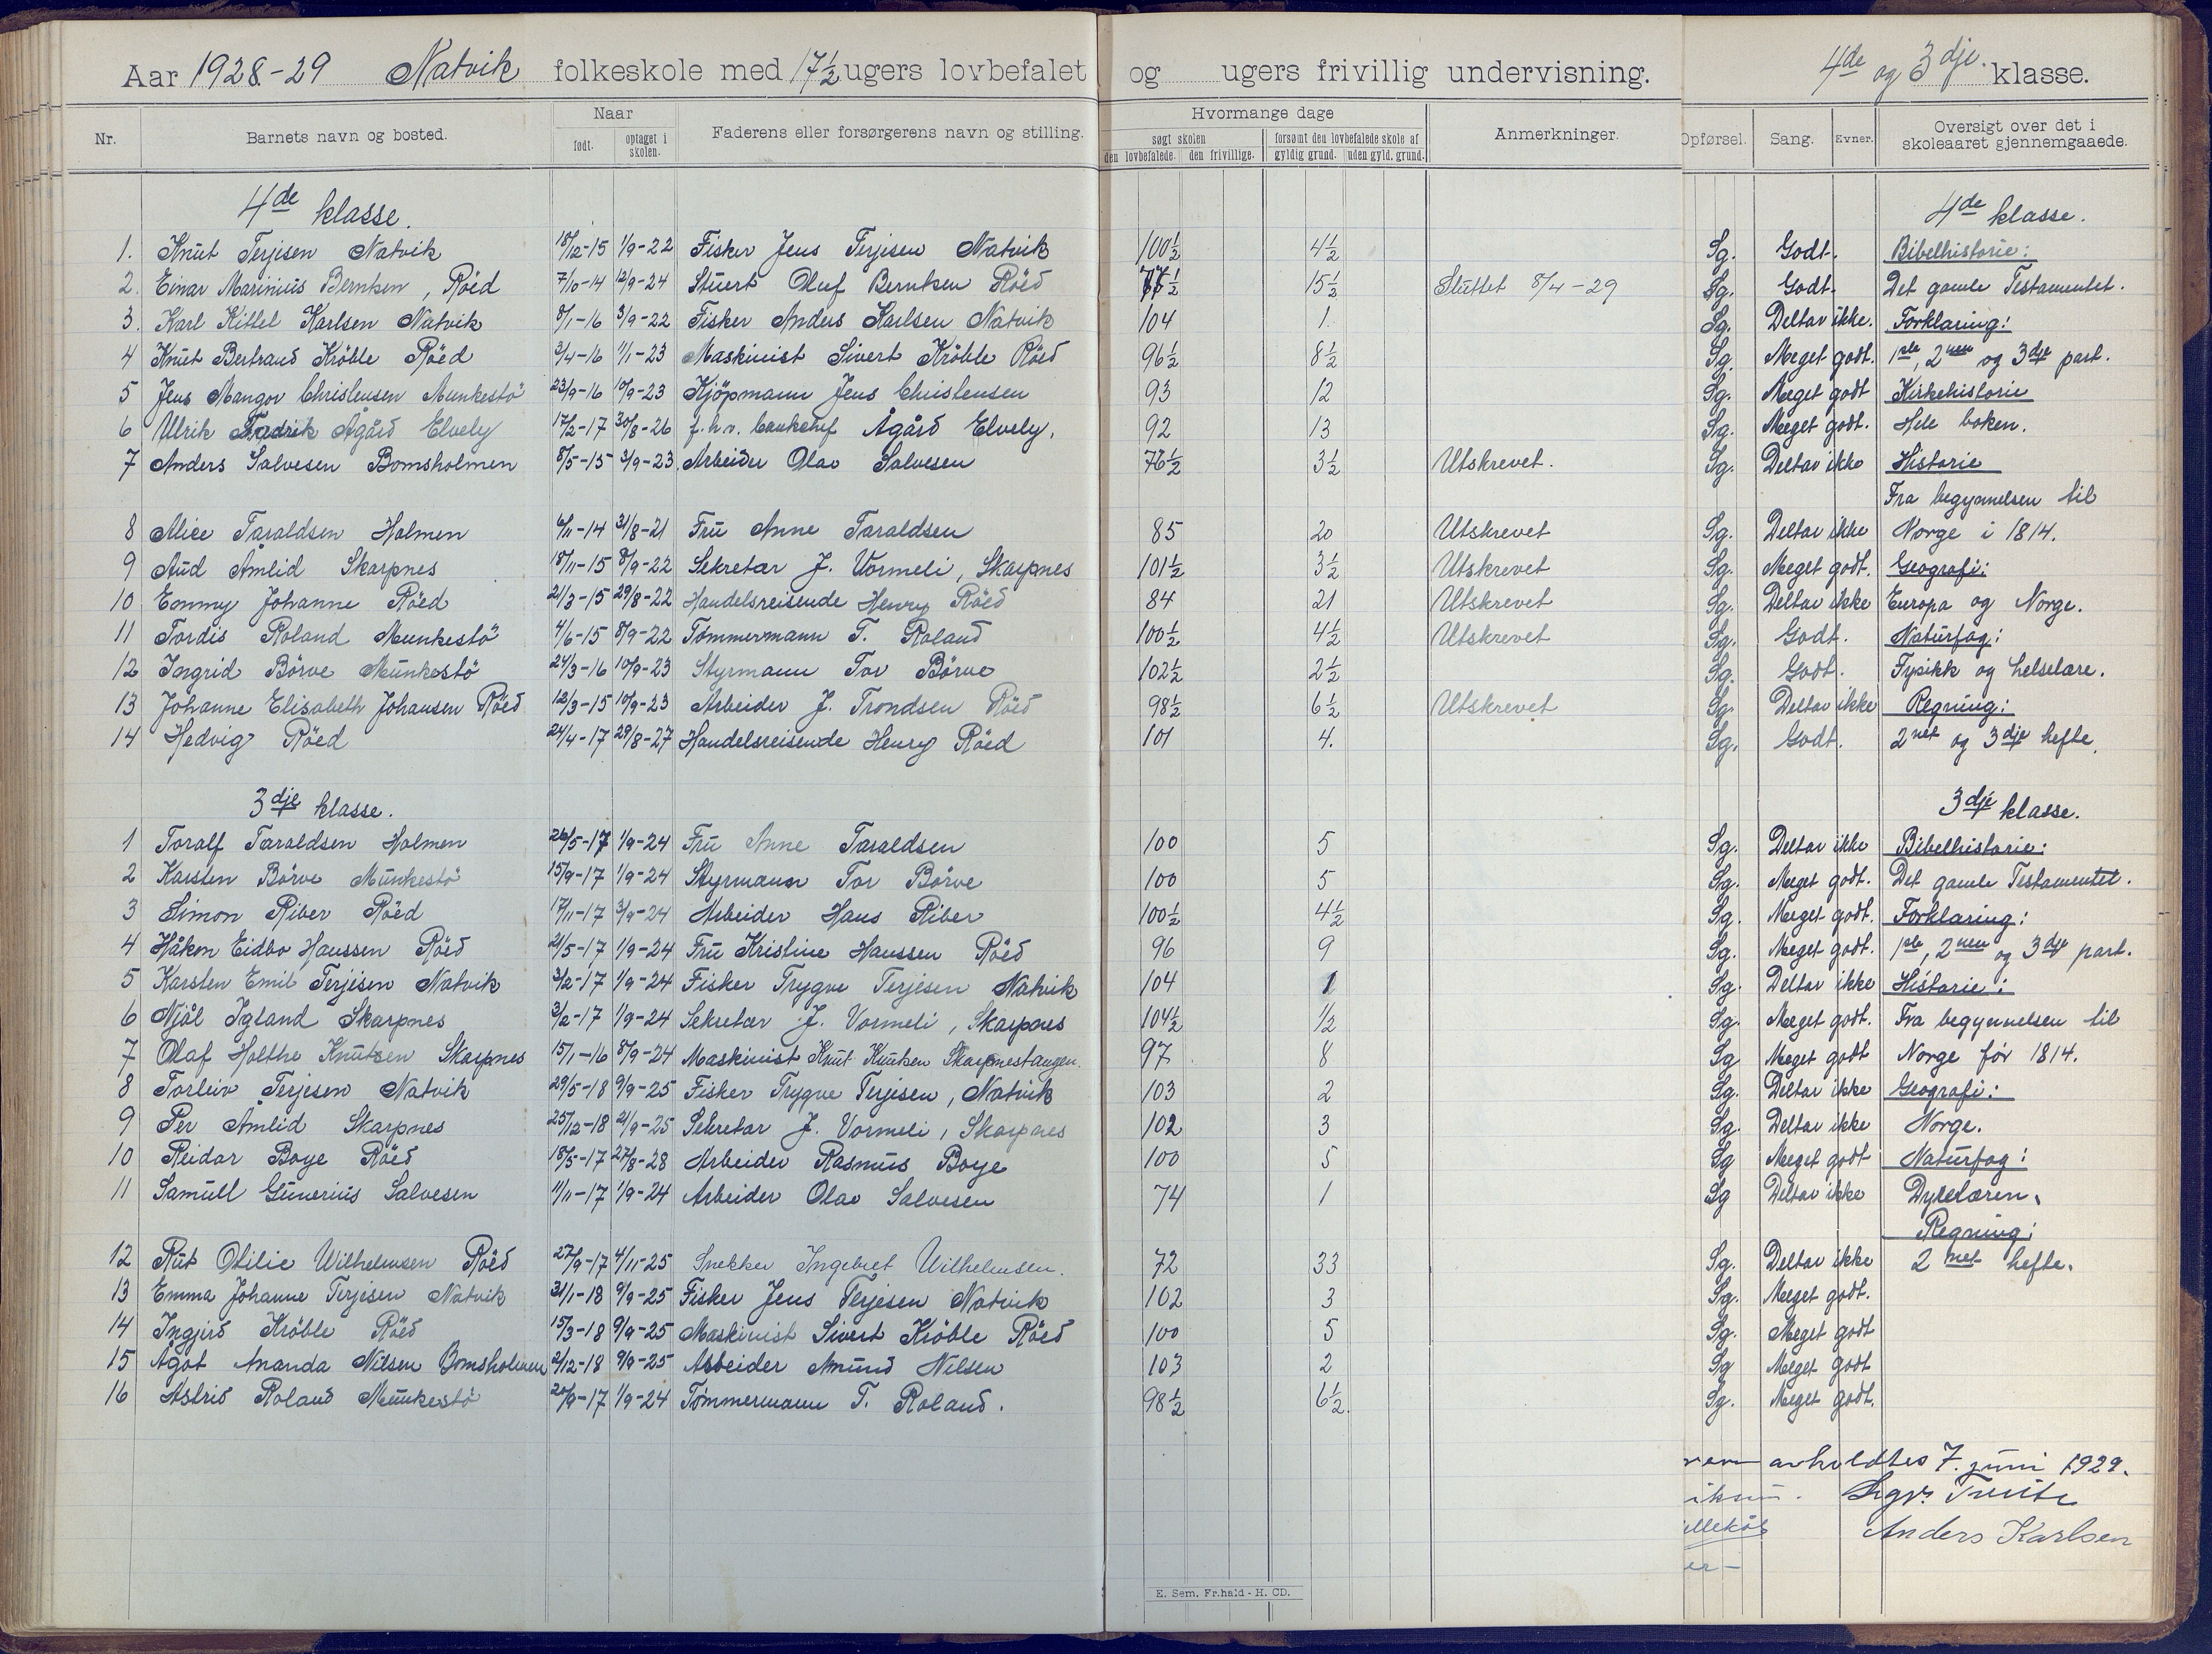 Aar 1928-29 Natvik folkeskole med 17½ ugers lovbefalet og ugers frivillig undervisning. 4de og 3dje klasse.
Nr. Barnets navn og bosted. Naar født. optaget i skolen. Faderens eller forsørgerens navn og stilling. Hvormange dage søgt skolen den lovbefalede. den frivillige. forsømt den lovbefalede skole af gyldig grund. uden gyld. grund. Anmerkninger. Opførsel. Sang. Evner. Oversigt over det i skoleaaret gjennemgaaede.
4de klasse. 4de klasse.
1. Knut Terjesen Natvik 18/12-15 1/9-22 Fisker Jens Terjesen Natvik 100½ 4½ Sg. Godt. Bibelhistorie:
2. Einar Marinius Berntsen, Röed 7/10-14 12/9-24 Stuert Oluf Berntsen Röed 77½ 15½ Sluttet 8/4-29 Sg. Godt. Det gamle Testamentet.
3. Karl Kittel Karlsen Natvik 8/1-16 3/9-22 Fisker Anders Karlsen Natvik 104 1 Sg. Deltar ikke. Forklaring:
4 Knut Bertrand Kröble Röed 3/4-16 1/1-23 Maskinist Sivert Kröble Röed 96½ 8½ Sg. Meget godt. 1ste, 2nen og 3dje part.
5 Jens Mangor Christensen Munkestö 23/9-16 10/9-23 Kjöpmann Jens Christensen 93 12 Sg. Meget godt Kirkehistorie
6 Ulrik Fredrik Ågård Elvely 17/2-17 30/8-26 f.h.v. bankchef Ågård Elvely. 92 13 Sg. Meget godt. Hele boken.
7 Anders Salvesen Bomsholmen 8/5-15 3/9-23 Arbeider Olav Salvesen 76½ 3½ Utskrevet. Sg. Deltar ikke Historie
Fra begynnelsen til
8 Alice Taraldsen Holmen 6/11-14 31/8-21 Fru Anne Taraldsen 85 20 Utskrevet Sg. Deltar ikke Norge i 1814.
9 Aud Åmlid Skarpnes 18/11-15 8/9-22 Sekretær J. Vormeli, Skarpnes 101½ 3½ Utskrevet Sg. Meget godt. Geografi:
10 Emmy Johanne Röed 21/3-15 29/8-22 Handelsreisende Henry Röed 84 21 Utskrevet Sg. Deltar ikke Europa og Norge.
11 Tordis Roland Munkestö 4/6-15 8/9-22 Tömmermann T. Roland 100½ 4½ Utskrevet Sg. Godt. Naturfag:
12 Ingrid Börve Munkestö 24/3-16 10/9-23 Styrmann Tor Börve 102½ 2½ Sg. Godt. Fysikk og helselære.
13 Johanne Elisabeth Johansen Röed 12/3-15 10/9-23 Arbeider J. Trondsen Röed 98½ 6½ Utskrevet Sg. Deltar ikke Regning:
14 Hedvig Röed 24/4-17 29/8-27 Handelsreisende Henry Röed 101 4. Sg. Godt. 2net og 3dje hefte.
3dje klasse. 3dje klasse.
1 Toralf Taraldsen Holmen 26/5-17 1/9-24 Fru Anne Taraldsen 100 5 Sg. Deltar ikke Bibelhistorie:
2 Karsten Börve Munkestö 15/9-17 1/9-24 Styrmann Tor Börve 100 5 Sg. Meget godt. Det gamle Testamentet.
3 Simon Riber Röed 17/11-17 3/9-24 Arbeider Hans Riber 100½ 4½ Sg. Meget godt. Forklaring:
4 Håkon Eidbo Hanssen Röed 21/5-17 1/9-24 Fru Kristine Hanssen Röed 96 9 Sg. Meget godt. 1ste, 2nen og 3dje part.
5 Karsten Emil Terjesen Natvik 3/2-17 1/9-24 Fisker Trygve Terjesen Natvik 104 1 Sg. Deltar ikke Historie:
6 Njål Igland Skarpnes 3/2-17 1/9-24 Sekretær J. Vormeli, Skarpnes 104½ ½ Sg. Meget godt. Fra begynnelsen til
7 Olaf Holthe Knutsen Skarpnes 15/1-16 8/9-24 Maskinist Knut Knutsen Skarpnestangen. 97 8 Sg Meget godt Norge før 1814.
8 Torleiv Terjesen Natvik 29/5-18 9/9-25 Fisker Trygve Terjesen, Natvik 103 2 Sg. Deltar ikke Geografi:
9 Per Åmlid Skarpnes 25/12-18 21/9-25 Sekretær J. Vormeli, Skarpnes 102 3 Sg. Deltar ikke Norge.
10 Reidar Boye Röed 18/5-17 27/8-28 Arbeider Rasmus Boye 100 5 Sg Meget godt Naturfag:
11 Samuel Gunerius Salvesen 11/11-17 1/9-24 Arbeider Olav Salvesen 74 1 Sg Deltar ikke Dyrelæren.
Regning:
12 Rut Otilie Wilhelmsen Röed 27/9-17 4/11-25 Snekker Ingebret Wilhelmsen. 72 33 Sg. Deltar ikke 2net hefte.
13 Emma Johanne Terjesen Natvik 31/1-18 9/9-25 Fisker Jens Terjesen Natvik 102 3 Sg. Meget godt.
14 Ingjerd Kröble Röed 15/3-18 9/9-25 Maskinist Sivert Kröble Röed 100 5 Sg. Meget godt
15 Ågot Ananda Nilsen Bomsholmen 2/12-18 9/9-25 Arbeider Amund Nilsen 103 2 Sg Meget godt
16 Astrid Roland Munkestö 20/9-17 1/9-24 Tömmermann T. Roland. 98½ 6½. Sg. Meget godt.
avholdtes 7. juni 1929.
Anders Karlsen
er-
E. Sem. Fr.hald - H. CD.